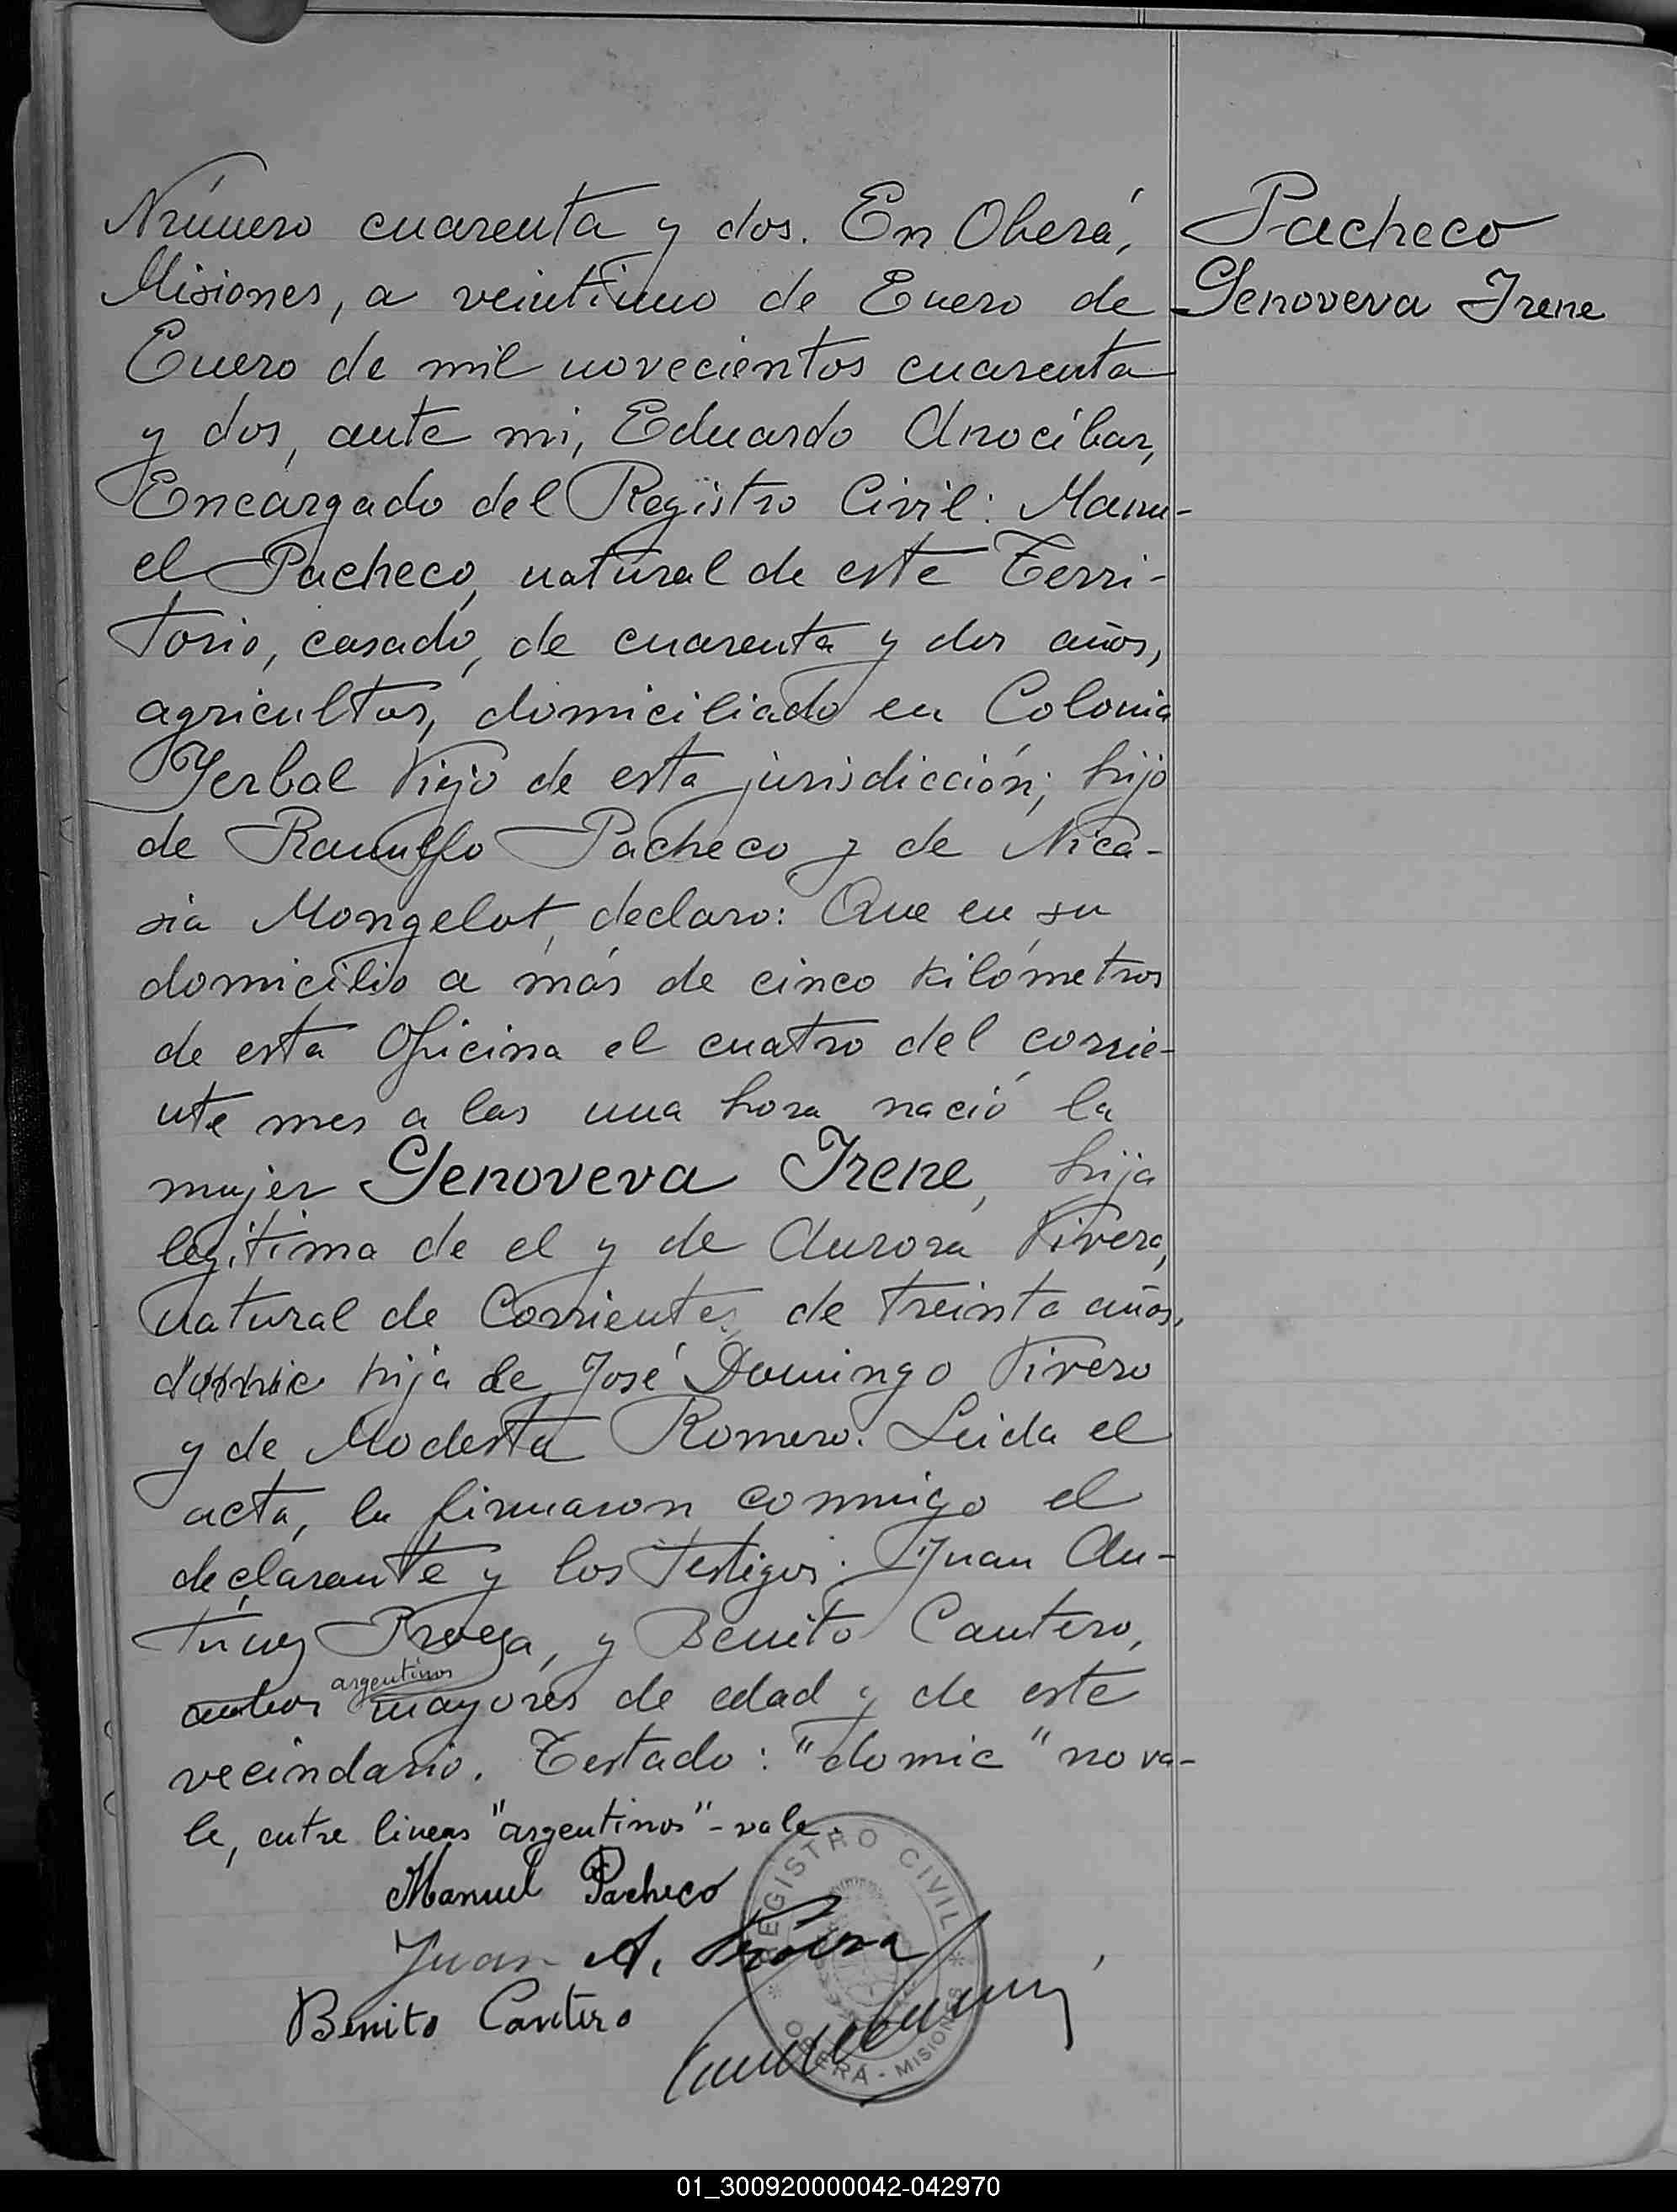 Número cuarenta y dos. En Oberá,
Misiones, a veintiuno de Enero de
Enero de mil novecientos cuarenta
y dos, ante mi, Eduardo Arocíbar,
Encargado del Registro Civil: Manu-
el Pacheco, natural de este Terri-
torio, casado, de cuarenta y dos años,
agricultor, domiciliado en Colonia
Yerbal Viejo de esta jurisdicción; hijo
de Ranulfo Pacheco y de Nica-
sia Mongelot, declaro: Que en su
domicilio a más de cinco kilómetros
de esta Oficina el cuatro del corrie-
nte mes a las una hora nació la
mujer Genoveva Irene, hija
legitima de el y de Aurora Vivero,
natural de Corrientes, de treinta años,
domic hija de José Domingo Vivero
y de Modesta Romero. Leida el
acta, la firmaron conmigo el
declarante y los testigos: Juan An-
tunez y Benito Cantero,
argentinos
ambos mayores de edad y de este
vecindario. Testado: "domic" no va-
le, entre lineas "argentinos" - vale.
Manuel Pacheco
Juan A.
Benito Cantero
Pacheco
Genoveva Irene
REGISTRO CIVIL
OBERÁ - MISIONES
01_300920000042-042970